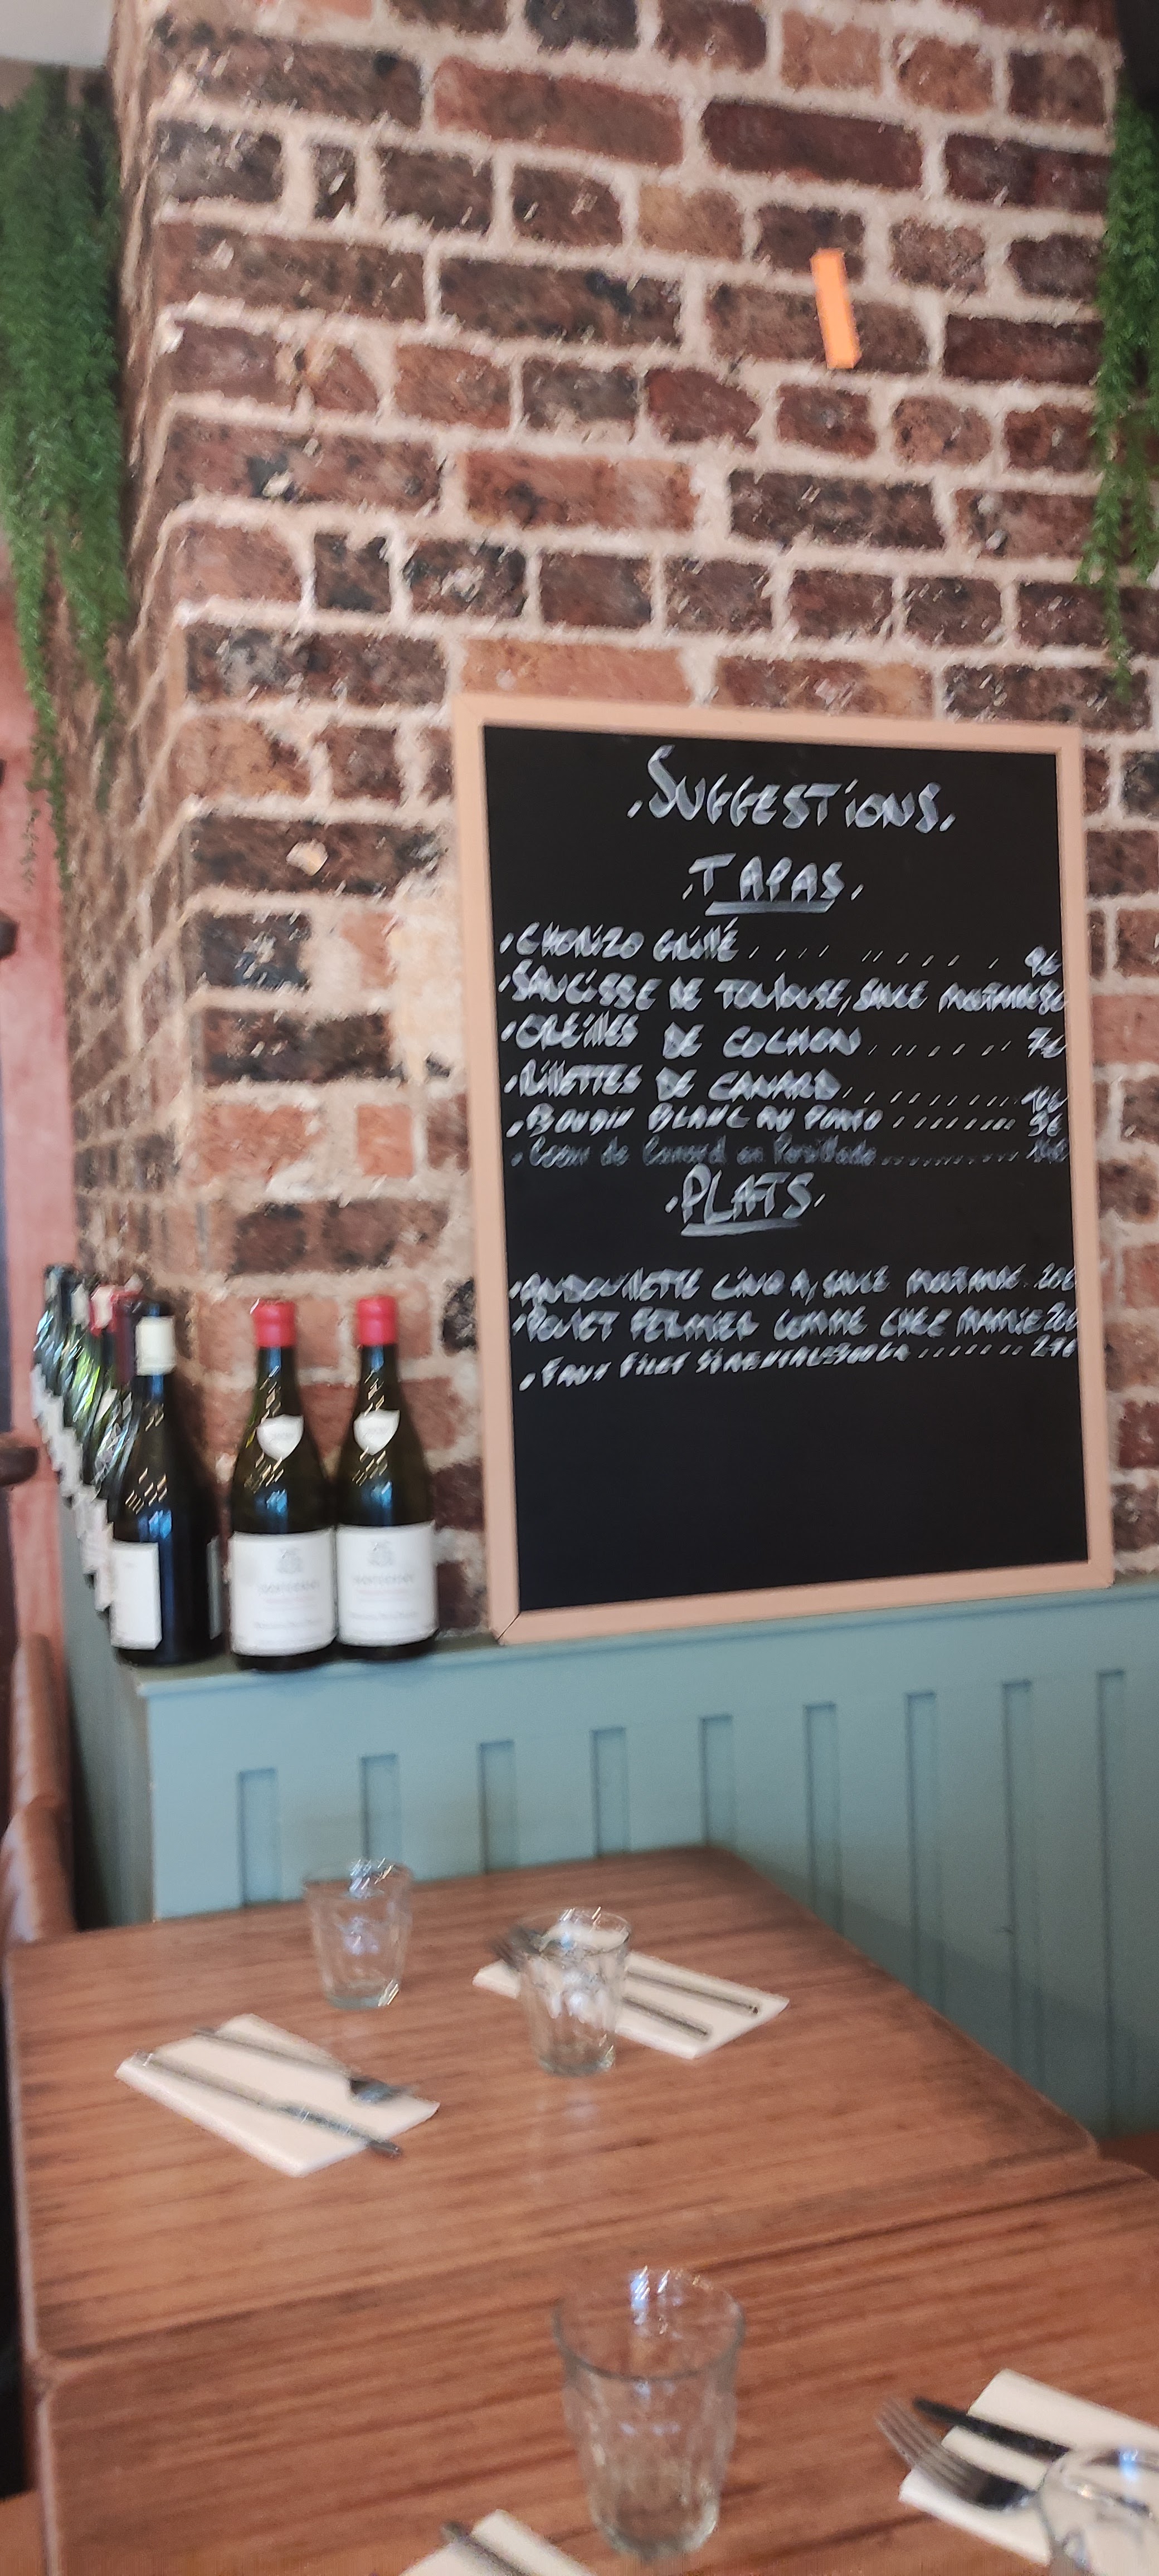 .SUGGESTIONS.
.TAPAS.
.CHORIZO GRILLÉ . . . . . . . . . . 9€
.SAUCISSE DE TOULOUSE, SAUCE MOUTARDE
.OREILLES DE COCHON . . . . . . . 7€
.RILLETTES DE CANARD. . . . . . . . . .
.BOUDIN BLANC AU PORTO . . . . . . . . . 9€
. Coeur de Canard en Persillade ..............
.PLATS.
.ANDOUILLETTE SAUCE MOUTARDE 20€
.POULET FERMIER COMME CHEZ MAMIE 20€
. FAUX FILET . . . . . . .